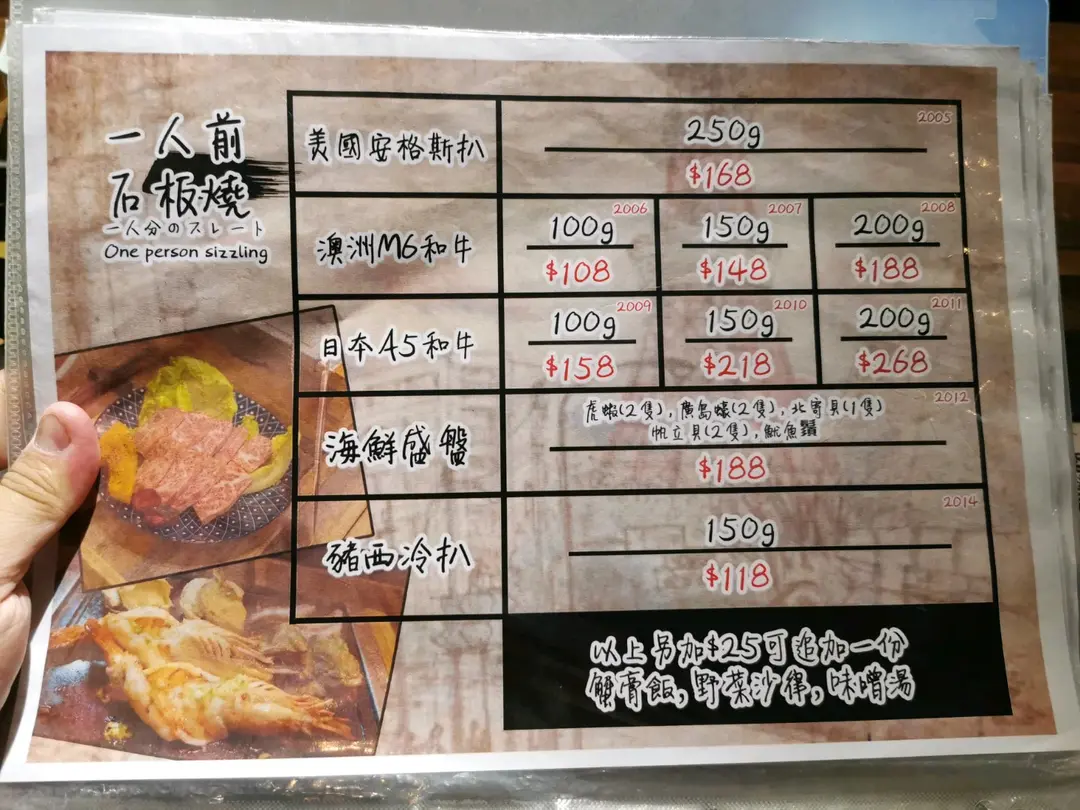 一人前
石板燒
一人分のスレート
One person sizzling
美國安格斯扒
2005
250g
$168
澳洲M6和牛
2006
100g
$108
2007
150g
$148
2008
200g
$188
日本A5和牛
2009
100g
$158
2010
150g
$218
2011
200g
$268
海鮮盛盤
2012
虎蝦(2隻),廣島蠔(2隻),北寄貝(1隻)
帆立貝(2隻),魷魚鬚
$188
豬西冷扒
2014
150g
$118
以上另加$25可追加一份
蟹膏飯,野菜沙律,味噌湯